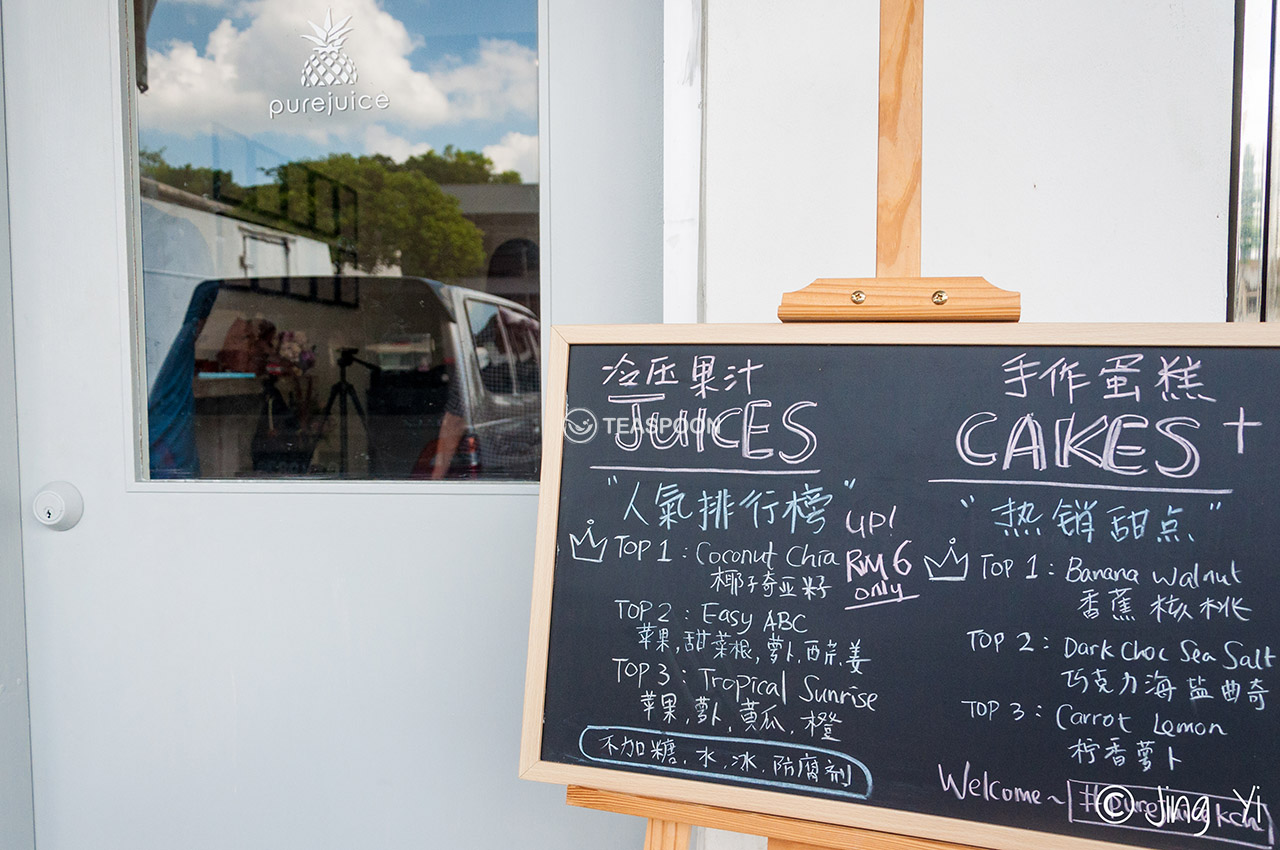 purejuice
冷压果汁
JUICES
"人氣排行榜"
UP!
RM6
only
TOP 1 : Coconut Chia
椰子奇亚籽
TOP 2 : Easy ABC
苹果,甜菜根,萝卜,西芹,姜
TOP 3 : Tropical Sunrise
苹果,萝卜,黄瓜,橙
不加糖,水,冰,防腐剂
手作蛋糕
CAKES+
"热销甜点"
TOP 1 : Banana Walnut
香蕉核桃
TOP 2 : Dark Choc Sea Salt
巧克力海盐曲奇
TOP 3 : Carrot Lemon
柠香萝卜
Welcome~ #purejuicekch
TEASPOON
© Jing Yi